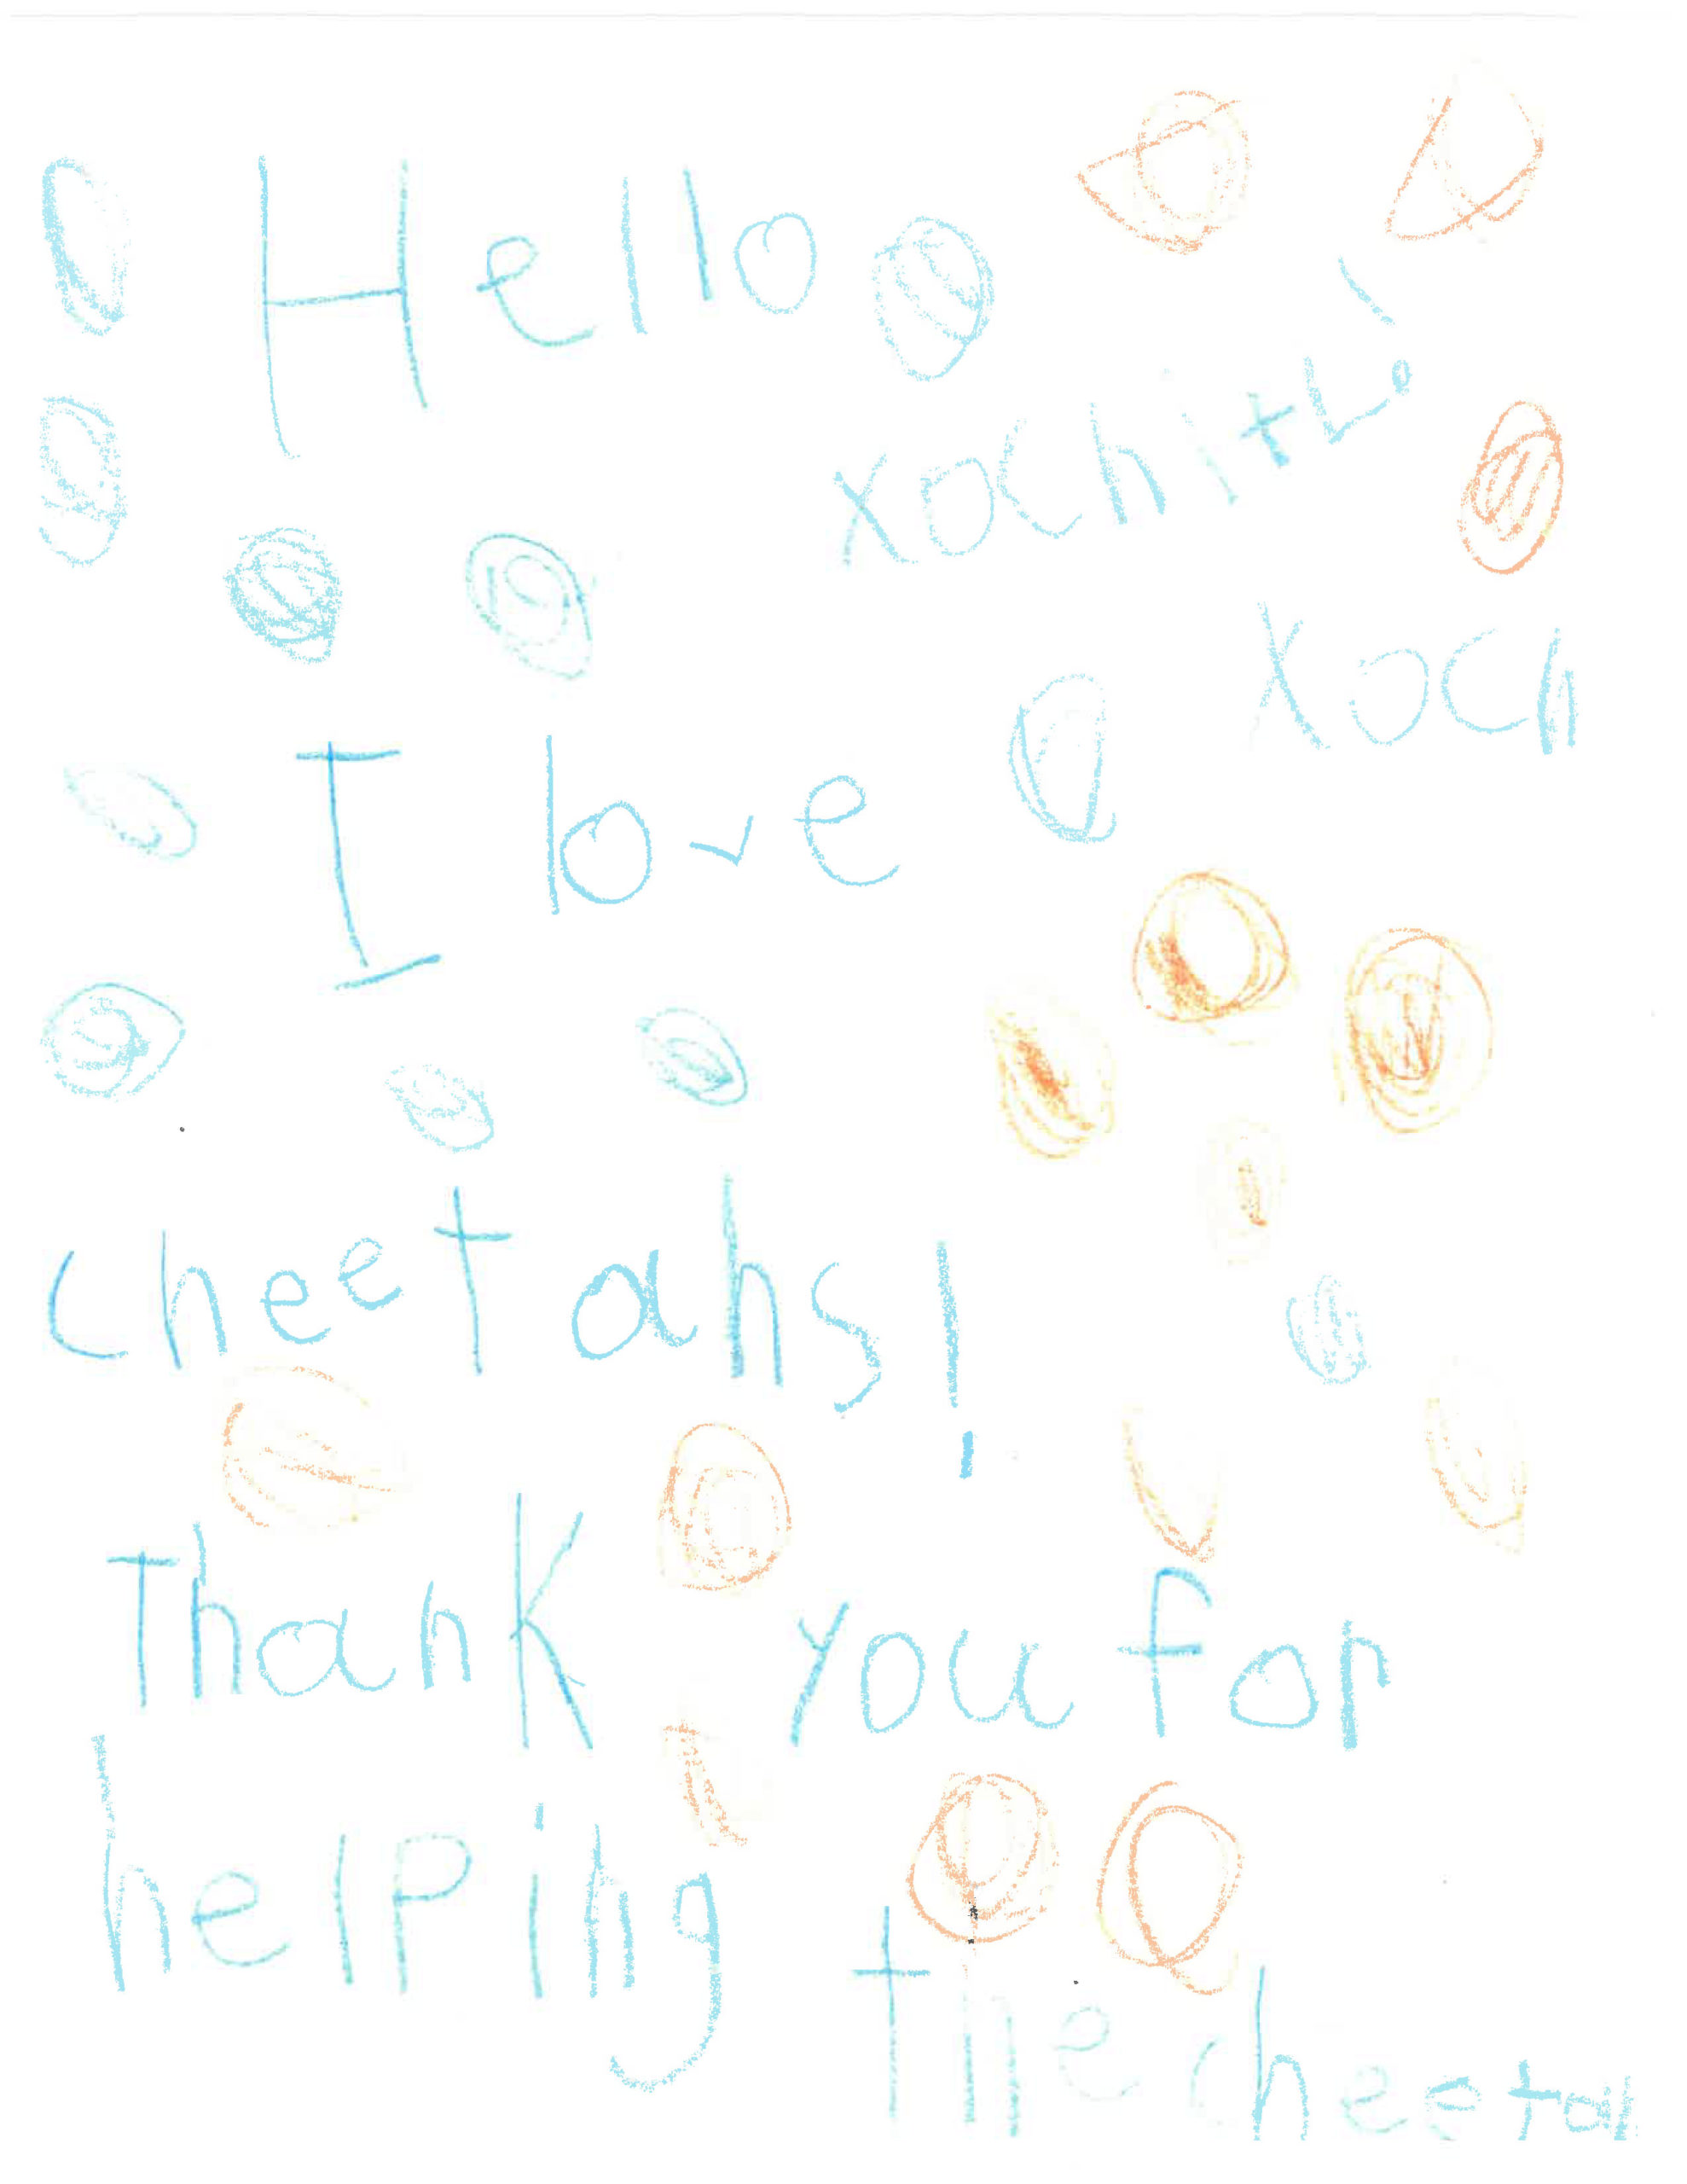 Hello
xochitl
xoch
I love
cheetahs!
Thank you for
helping
the cheetah